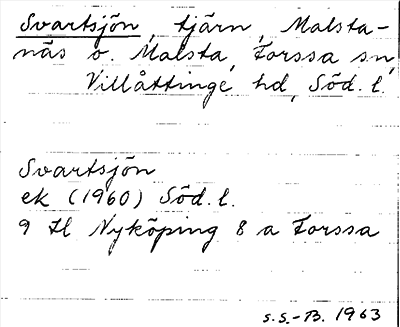 Svartsjön, tjärn, Malsta-
näs o. Malsta, Forssa sn,
Villåttinge hd, Söd. l.
Svartsjön
ek (1960) Söd. l.
9 H Nyköping 8 a Forssa
S.S.-B. 1963